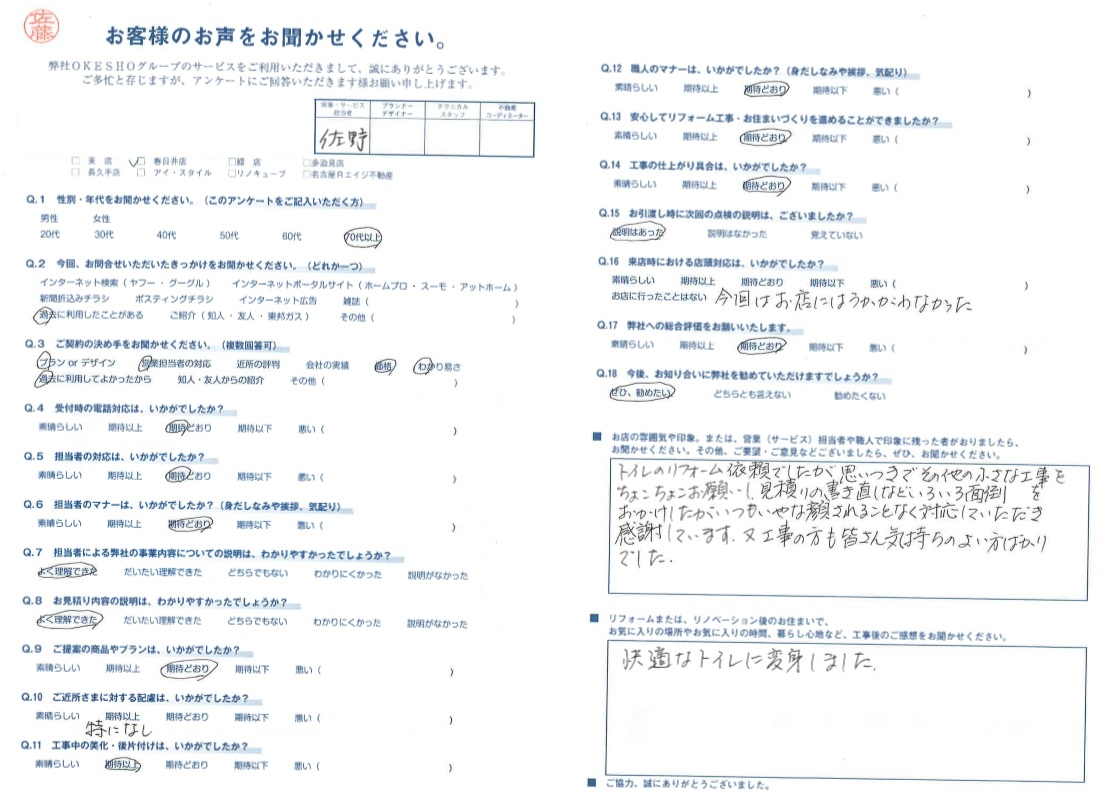 佐藤
お客様のお声をお聞かせください。
弊社OKESHOグループのサービスをご利用いただきまして、誠にありがとうございます。
ご多忙と存じますが、アンケートにご回答いただきます様お願い申し上げます。
営業・サービス担当者 プランナーデザイナー テクニカルスタッフ 不動産コーディネーター
佐野
□ 東 店 ✓□ 春日井店 □緑 店 □多治見店
□ 長久手店 □ アイ・スタイル □リノキューブ □名古屋Rエイジ不動産
Q.1 性別・年代をお聞かせください。(このアンケートをご記入いただく方)
男性 女性
20代 30代 40代 50代 60代 70代以上
Q.2 今回、お問合せいただいたきっかけをお聞かせください。(どれか一つ)
インターネット検索(ヤフー・グーグル) インターネットポータルサイト(ホームプロ・スーモ・アットホーム)
新聞折込みチラシ ポスティングチラシ インターネット広告 雑誌( )
過去に利用したことがある ご紹介(知人・友人・東邦ガス) その他( )
Q.3 ご契約の決め手をお聞かせください。(複数回答可)
プラン or デザイン 営業担当者の対応 近所の評判 会社の実績 価格 わかり易さ
過去に利用してよかったから 知人・友人からの紹介 その他( )
Q.4 受付時の電話対応は、いかがでしたか?
素晴らしい 期待以上 期待どおり 期待以下 悪い( )
Q.5 担当者の対応は、いかがでしたか?
素晴らしい 期待以上 期待どおり 期待以下 悪い( )
Q.6 担当者のマナーは、いかがでしたか?(身だしなみや挨拶、気配り)
素晴らしい 期待以上 期待どおり 期待以下 悪い( )
Q.7 担当者による弊社の事業内容についての説明は、わかりやすかったでしょうか?
よく理解できた だいたい理解できた どちらでもない わかりにくかった 説明がなかった
Q.8 お見積り内容の説明は、わかりやすかったでしょうか?
よく理解できた だいたい理解できた どちらでもない わかりにくかった 説明がなかった
Q.9 ご提案の商品やプランは、いかがでしたか?
素晴らしい 期待以上 期待どおり 期待以下 悪い( )
Q.10 ご近所さまに対する配慮は、いかがでしたか?
素晴らしい 期待以上 期待どおり 期待以下 悪い( )
特になし
Q.11 工事中の美化・後片付けは、いかがでしたか?
素晴らしい 期待以上 期待どおり 期待以下 悪い( )
Q.12 職人のマナーは、いかがでしたか?(身だしなみや挨拶、気配り)
素晴らしい 期待以上 期待どおり 期待以下 悪い( )
Q.13 安心してリフォーム工事・お住まいづくりを進めることができましたか?
素晴らしい 期待以上 期待どおり 期待以下 悪い( )
Q.14 工事の仕上がり具合は、いかがでしたか?
素晴らしい 期待以上 期待どおり 期待以下 悪い( )
Q.15 お引渡し時に次回の点検の説明は、ございましたか?
説明はあった 説明はなかった 覚えていない
Q.16 来店時における店頭対応は、いかがでしたか?
素晴らしい 期待以上 期待どおり 期待以下 悪い( )
お店に行ったことはない 今回はお店にはうかがわなかった
Q.17 弊社への総合評価をお願いいたします。
素晴らしい 期待以上 期待どおり 期待以下 悪い( )
Q.18 今後、お知り合いに弊社を勧めていただけますでしょうか?
ぜひ、勧めたい どちらとも言えない 勧めたくない
■ お店の雰囲気や印象。または、営業(サービス)担当者や職人で印象に残った者がおりましたら、
お聞かせください。その他、ご要望・ご意見などございましたら、ぜひ、お聞かせください。
トイレのリフォーム依頼でしたが思いつきでその他の小さな工事を
ちょこちょこお願いし、見積りの書き直しなどいろいろ面倒を
おかけしたがいつもいやな顔されることなく対応していただき
感謝しています。又工事の方も皆さん気持ちのよい方ばかり
でした.
■ リフォームまたは、リノベーション後のお住まいで、
お気に入りの場所やお気に入りの時間、暮らし心地など、工事後のご感想をお聞かせください。
快適なトイレに変身しました.
■ ご協力、誠にありがとうございました。